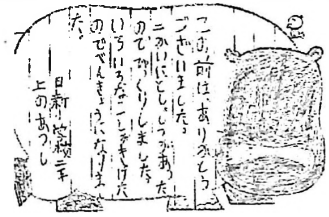 この前はありがとう
ございました。
二かいにとしょしつがあった
のでびっくりしました。
いろいろなことがきけた
のでべんきょうになりまし
た。
日新小学校二年
上のあつし